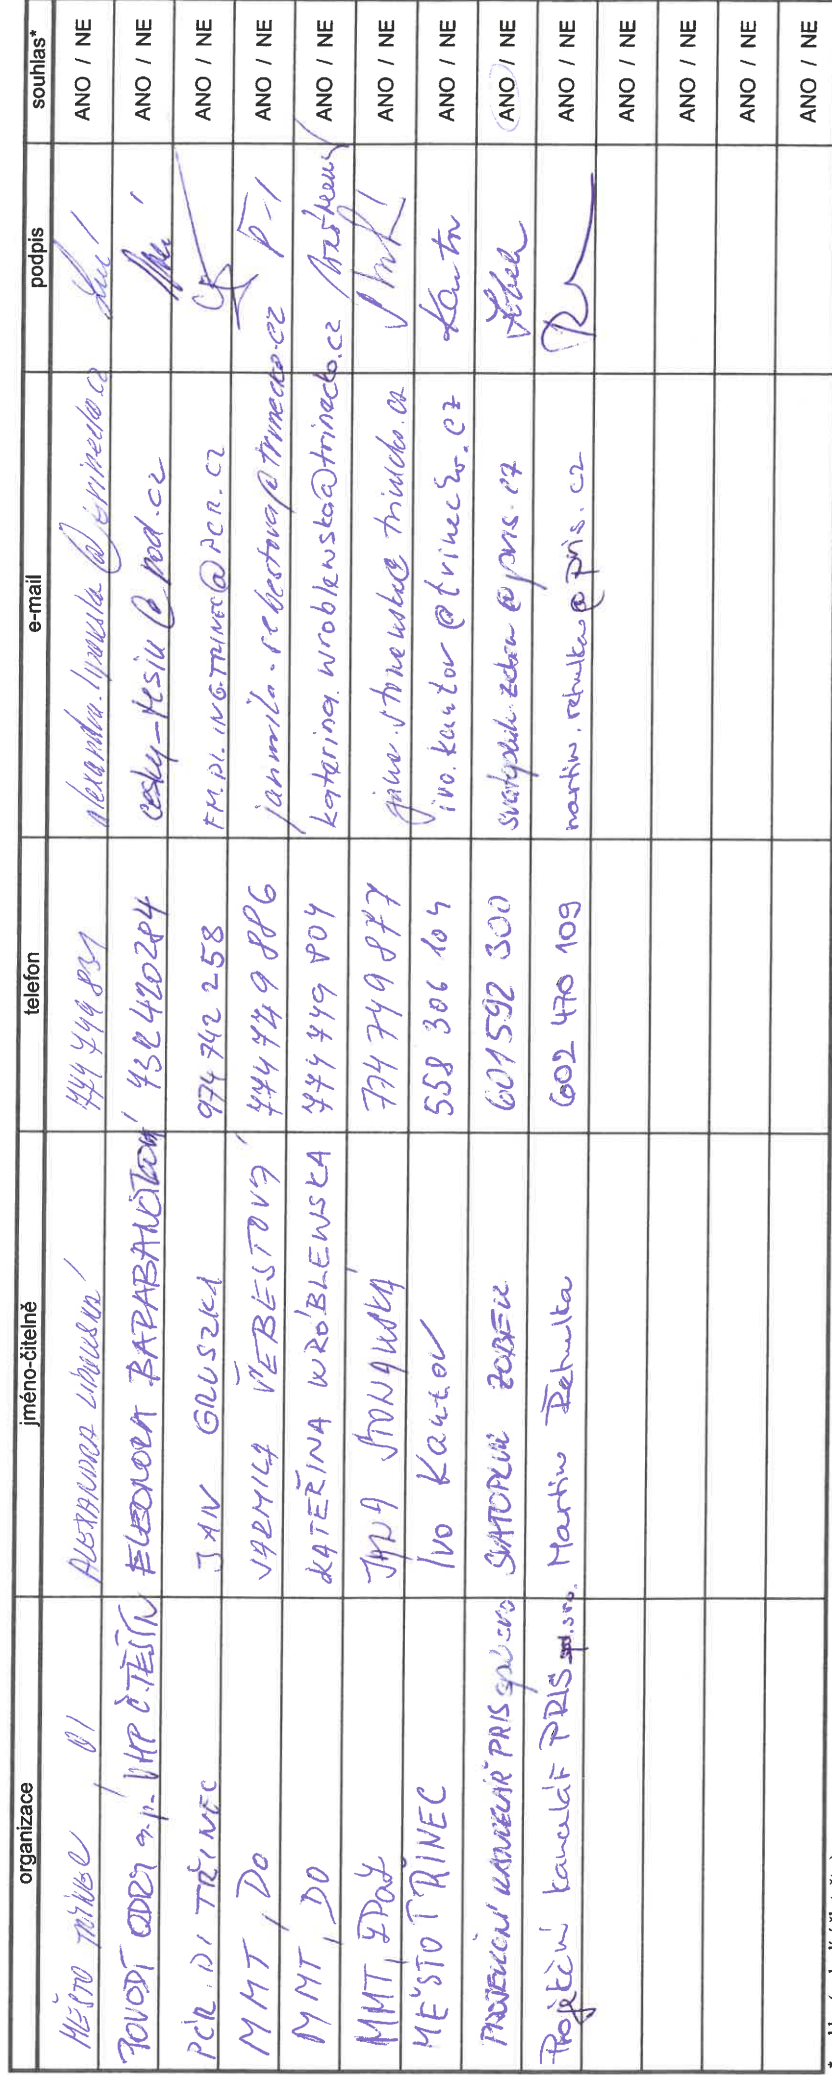 organizace jméno-čitelně telefon e-mail podpis souhlas*
MĚSTO TŘINEC, OI ALEXANDRA 774 749 831 ANO / NE
POVODÍ ODRY s.p. VHP Č.TĚŠÍN ELEONORA 732 420 284 cesky-tesin@pod.cz ANO / NE
PČR DI TŘINEC JAN GRUSZKA 974 742 258 FM.DI.ING.TRINEC@PCR.CZ ANO / NE
MMT, DO JARMILA ŠEBESTOVÁ 774 749 886 jarmila.sebestova@trinecko.cz ANO / NE
MMT, DO KATEŘINA WRÓBLEWSKA 774 749 804 katerina.wroblewska@trinecko.cz ANO / NE
MMT, JANA STONAWSKÁ 774 749 877 jana.stonawska@trinecko.cz ANO / NE
MĚSTO TŘINEC Ivo Kantor 558 306 104 ivo.kantor@trinecko.cz Kantor ANO / NE
PROJEKČNÍ KANCELÁŘ PRIS spol. s r.o. SVATOPLUK ZOBEK 601 592 300 svatopluk.zobek@pris.cz Zobek ANO / NE
Projekční kancelář PRIS spol. s r.o. Martin Řehulka 602 470 109 martin.rehulka@pris.cz ANO / NE
ANO / NE
ANO / NE
ANO / NE
ANO / NE